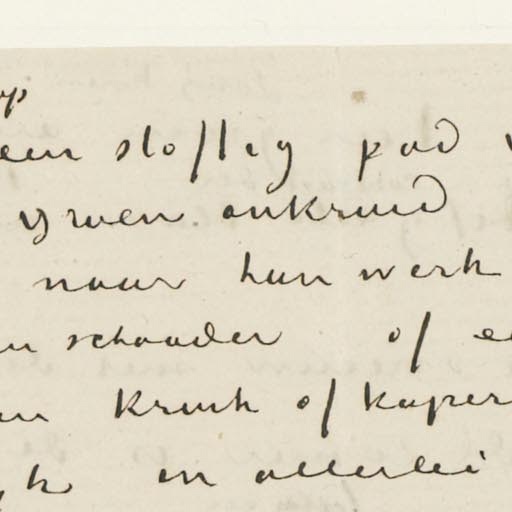 op
een stoffig pad
groen onkruid
naar hun werk
schaader of
kruik of koper
in allerlei